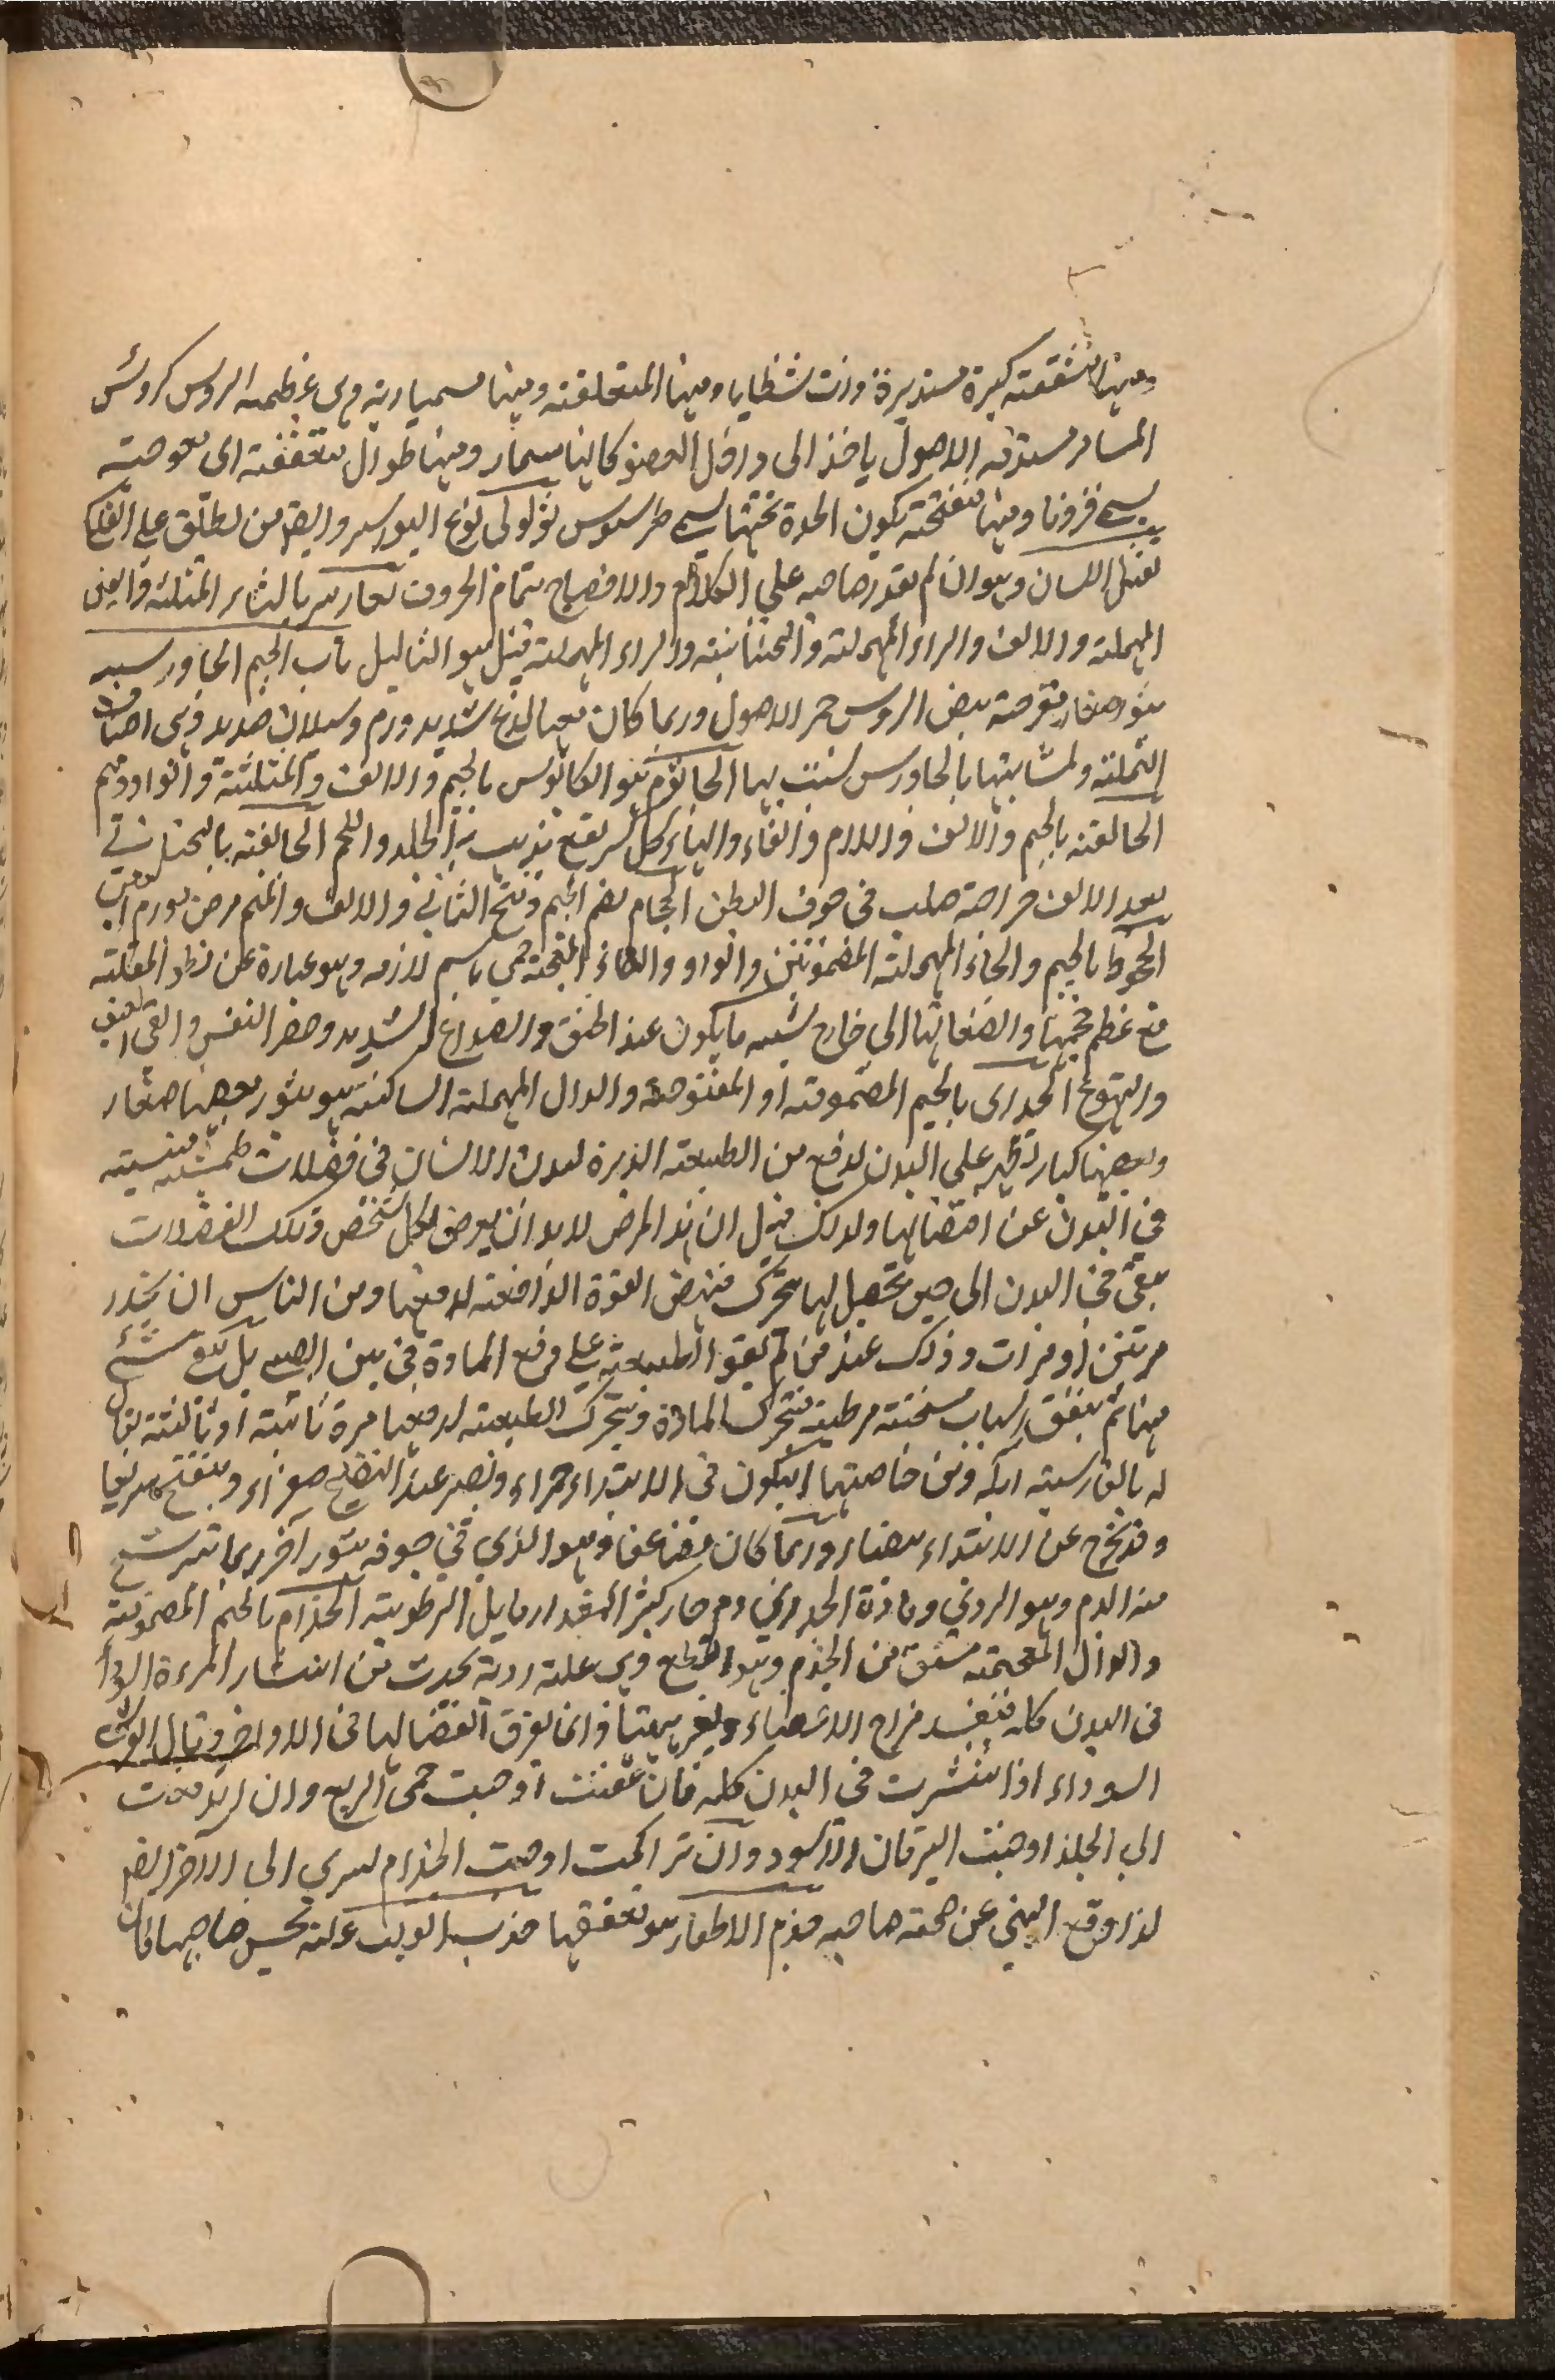 ومنها متشققة كبيرة مستديرة ذات شظايا ومنها المتعلقة ومنها مسمارية وهى عظيمة الروس كروس
المسامير مستدقة الاصول ياخذ الى داخل العضو كانها مسمار ومنها طوال متعقفة اى معوجة
يسمى قرونا ومنها متفتحة يكون المدة تحتها يسمى طرسوس ثؤلولى نوع البواسير وايضا من يطلق على
ثقل اللسان وهو ان لم يقدر صاحبه على الكلام والافصاح بتمام الحروف ثعارير بالثاء المثلثة والعين
المهملة والالف والراء المهملة والتحتانية والراء المهملة قيل هو الثاليل باب الجيم الجاورسيه
بثور صغار متقرحة بيض الروس حمر الاصول وربما كان معها لذع شديد وورم وسيلان صديد وهى اصناف
النملة ولمشابهتها بالجاورس نسبت بها الجاثوم هو الكابوس بالجيم والالف والمثلثة والواو وميم
الجالفة بالجيم والالف واللام والفاء والهاء كل قرحة تذهب بها الجلد واللحم الجائفة بالتحتانية
بعد الالف جراحة صلت فى جوف البطن الجحام بضم الجيم وفتح الثانى والالف والميم مرض يورم العين
الجحوظ بالجيم والحاء المهملة المضمومتين والواو والظاء المعجمة سمى باسم لازمه وهو عبارة عن نتو المقلة
مع عظم حجمها وانضغاطها الى خارج شبيه ما يكون عند الخنق والصداع الشديد وحصر النفس والقى العنيف
والتهوع الجدرى بالجيم المضمومة او المفتوحة والدال المهملة الساكنة هو بثور بعضها صغار
وبعضها كبار تظهر على البدن لدفع من الطبيعة المدبرة لبدن الانسان فى فضلات طمثية منبثة
فى البدن عن اغتذائها ولذلك قيل ان هذا المرض لابد ان يعرض لكل شخص وتلك الفضلات
يبقى فى البدن الى حين تحصل لها متحرك فتنهض القوة الدافعة لدفعها ومن الناس ان يجدر
مرتين او مرات وذلك عند من لم يقو الطبيعة على دفع المادة فى سن الصبى بل يبقى شئ
منها ثم يتفق اسباب مسخنة مرطبة فتتحرك المادة ويتحرك الطبيعة لدفعها مرة ثانية او ثالثة يقال
له بالفارسية آبله ومن خاصيتها ان يكون فى الابتداء حمراء ويصير عند النضج صفراء ويتفتح سريعا
وقد تخرج عن الابتداء بيضا وربما كان مضاعفا وهو الذى فى جوفه بثور آخر ربما ترشح
منه الدم وهو الردى ومادة الجدرى دم حار كثير المقدار مايل الى الرطوبة الجذام بالجيم المضمومة
والذال المعجمة مشتق من الجذم وهو القطع وهى علة ردية يحدث من انتشار المرة السودا
فى البدن كله فيفسد مزاج الاعضاء ويغير هيئتها وربما يفرق اتصالها فى الاواخر وقال القرشى
السوداء اذا انتشرت فى البدن كله فان عفنت اوجبت حمى الربع وان اندفعت
الى الجلد اوجبت اليرقان الاسود وان تراكمت اوجبت الجذام يسرى الى الآخر ايضا
لذا وقع النهى عن صحبة صاحبه جذم الاظفار هو تعقفها جذب القلب علة يحس صاحبها كان